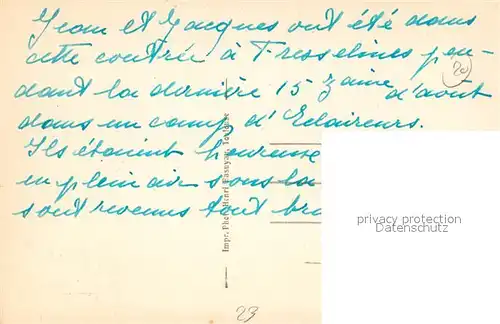 Jean et Jacques ont été dans
cette contrée à Fresselines pen-
dant la dernière 15zaine d'août
dans un camp d'Eclaireurs.
Ils étaient heureuse
en plein air sous la
sont revenus tout bro
20
Impr. Phot. Henri Basuyau, Toulouse
privacy protection
Datenschutz
23